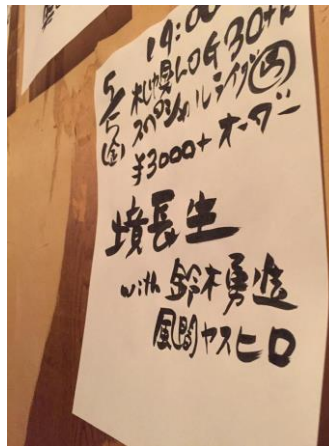 19:00
札幌LOG30th
スペシャルライブ
¥3000+オーダー
境長生
with 鈴木
風間ヤスヒロ